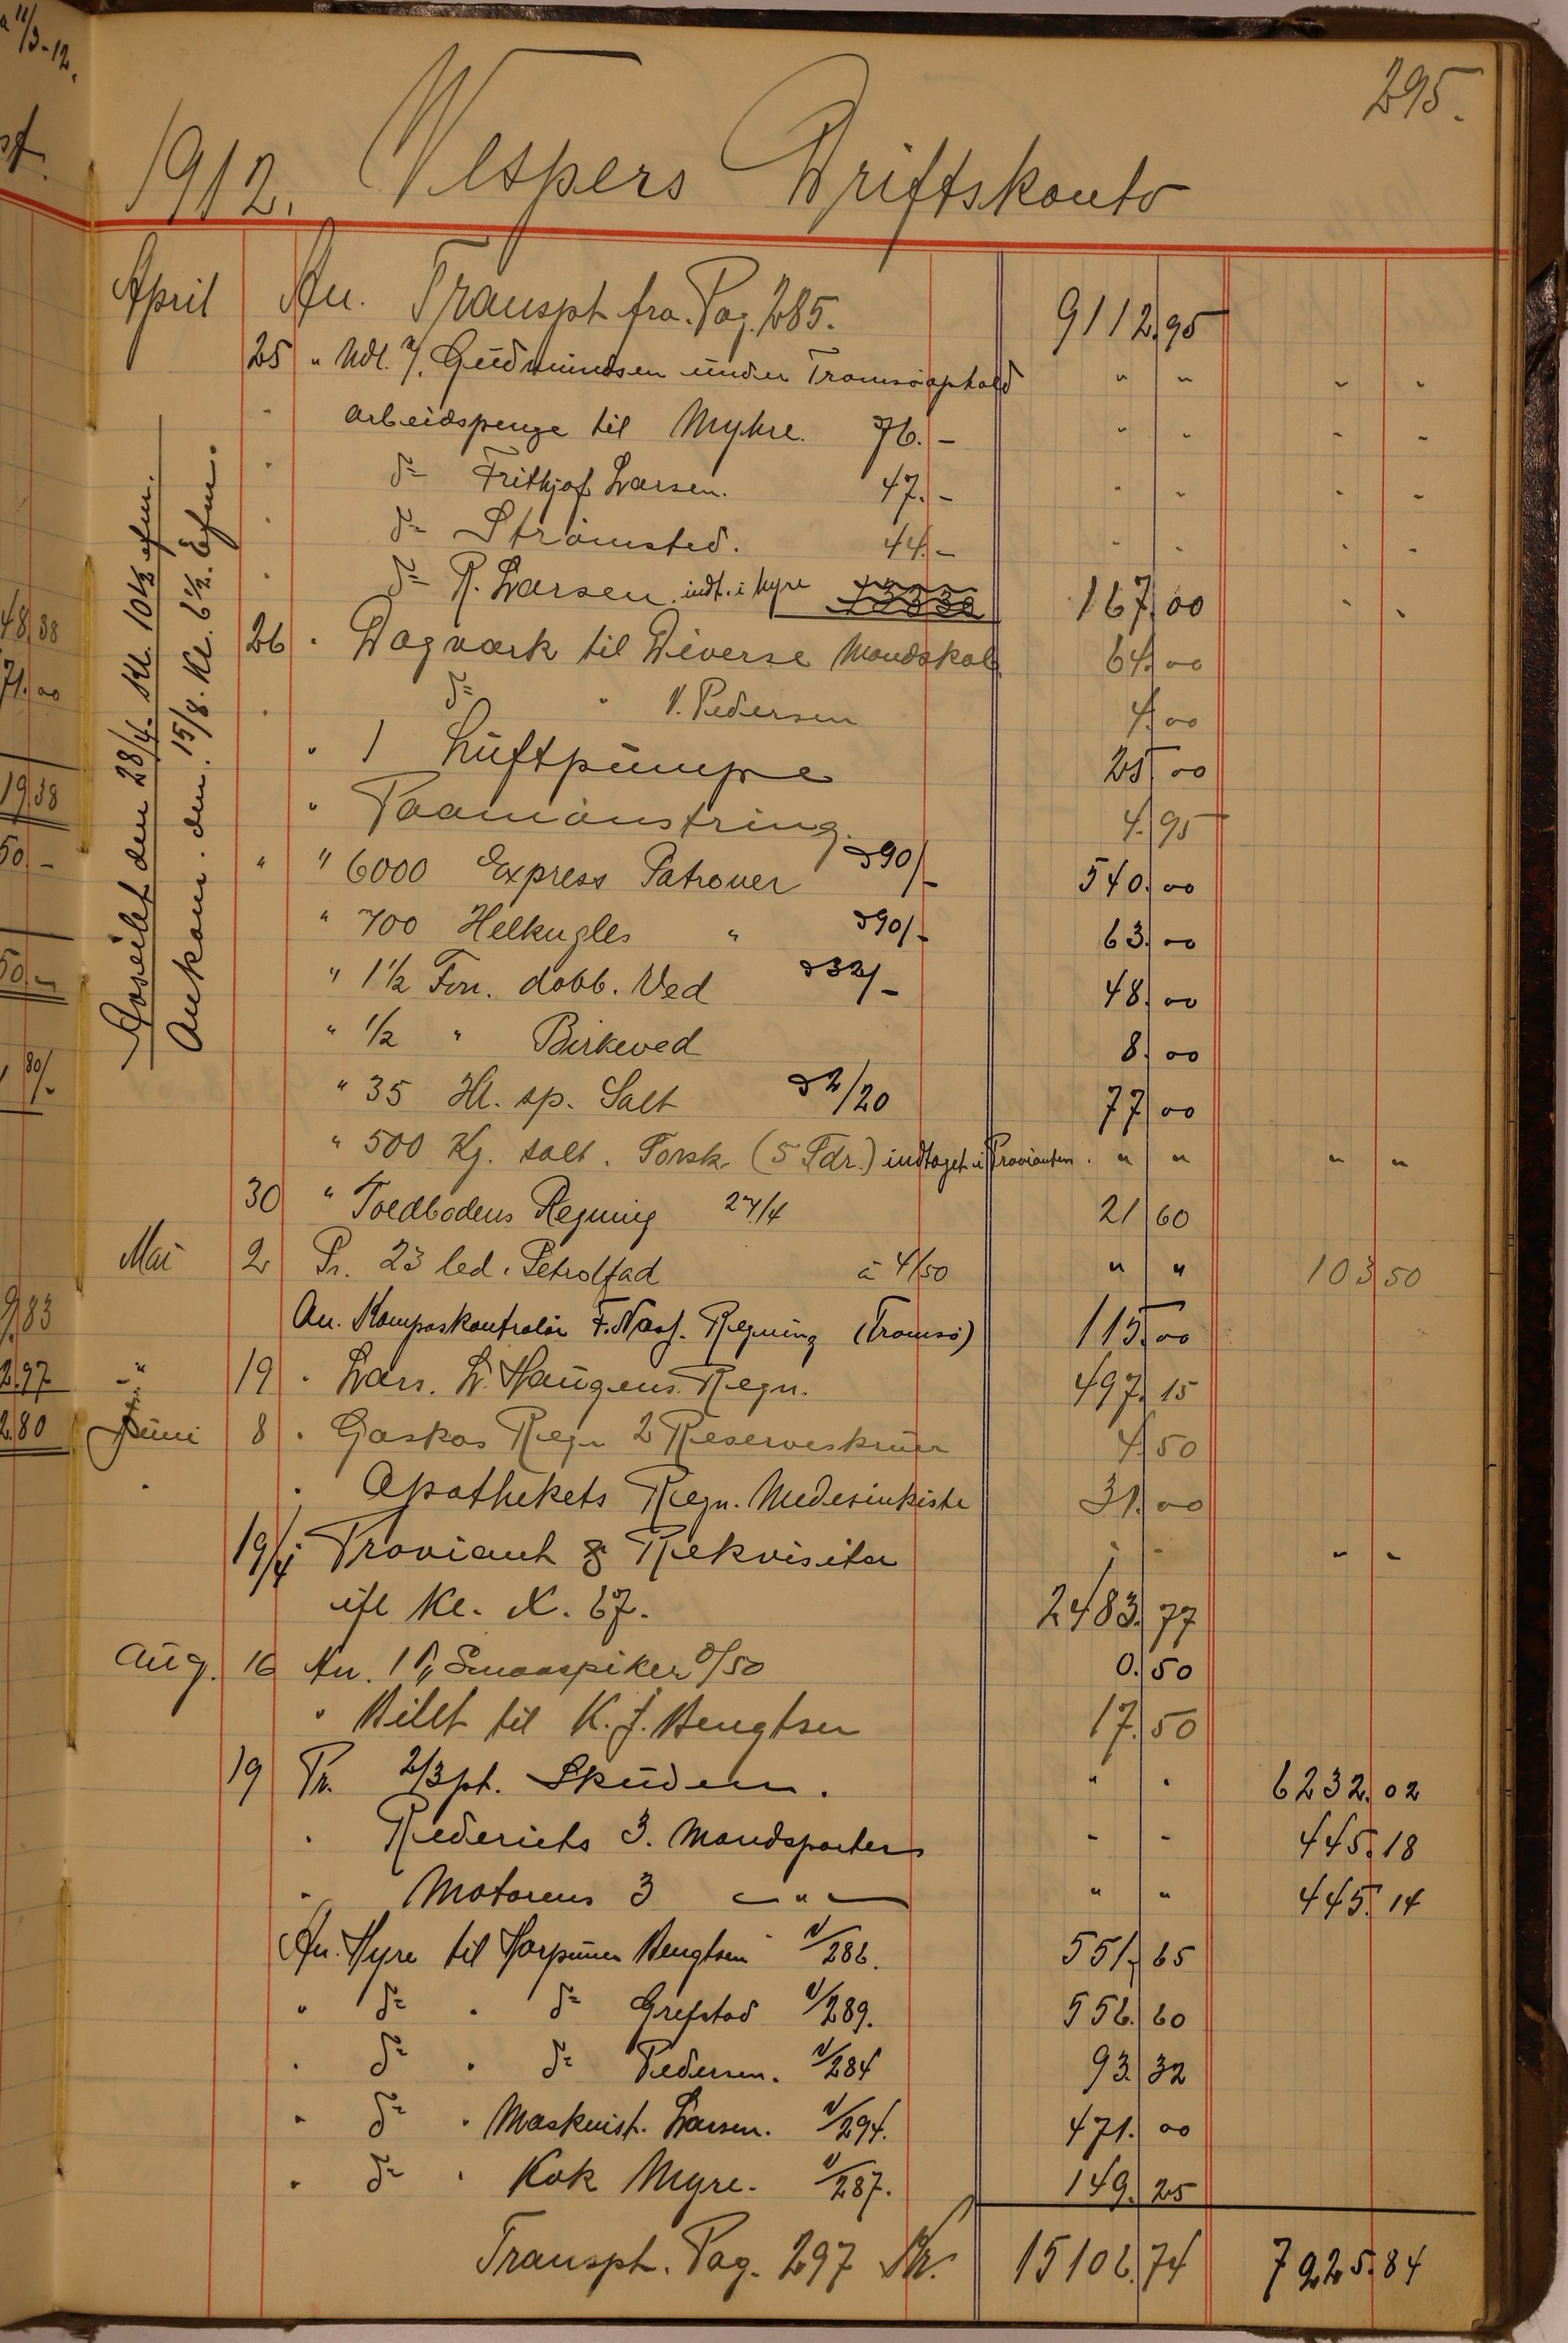 a 11/3-12.
295.
1912. Vespers Driftskonto
April An. Transpt fra. Pag. 285. 9112.95
25 " Udl. Gudmundsen under Tromsøophold " " " "
" arbeidspenge til Myhre. 76.- " " " "
" do Frithjof Larsen. 47.- " " " "
" do Strømsted. 44.- " " " "
" do R. Larsen. indt. i hyre 167.00 " "
26 " Dagværk til Diverse Mandskab 64.00
" do " V. Pedersen 4.00
" 1 Luftpumpe 25.00
" Paamønstring. 4.95
" " 6000 Express Patroner a 90/- 540.00
" 700 Helkugles " a 90/- 63.00
" 1½ Fvn. dobb. Ved a 32/- 48.00
" ½ " Birkeved 8.00
" 35 Hl. sp. Salt a 2/20 77.00
" 500 Kg. salt. Torsk. (5 Tdr.) indtaget i Provianten. " " " "
30 " Toldbodens Regning 27/4 21.60
Mai 2 Pr. 23 led. Petrolfad à 4/50 " " 103.50
An. Kompaskontrolør F. Regning (Tromsø) 115.00
" 19 " Lars. L. Haugens. Regn. 497.15
Juni 8 " Gaskas Regn 2 Reserveskruer 4.50
" " Apothekets Regn. Medesinkiste 31.00
19/4 " Proviant & Rekvisita " " " "
ifl Kl. N. 67. 2483.77
Aug. 16 An. 1 Pk Smaaspiker 0/50 0.50
" Billet til K. J. Bengtsen 17.50
19 Pr. 2/3 pt. Skuden. " " 6232.02
" Rederiets 3. Mandsparter " " 445.18
" Motorens 3 — " — " " 445.14
An. Hyre til Harpuner Bengtsen V/286. 551.65
" do " do Grefstad V/289. 556.60
" do " do Pedersen. V/284 93.32
" do " Maskinist. Larsen. V/294. 471.00
" do " Kok Myre. V/287. 149.25
Transpt. Pag. 297 Kr. 15106.74 7225.84
Avseilet den 28/4. Kl. 10½ efm.
Ankom. den. 15/8. Kl. 6½. Efm.
48 38
71.00
19 38
50 -
50 -
80/-
9.83
2.97
2.80